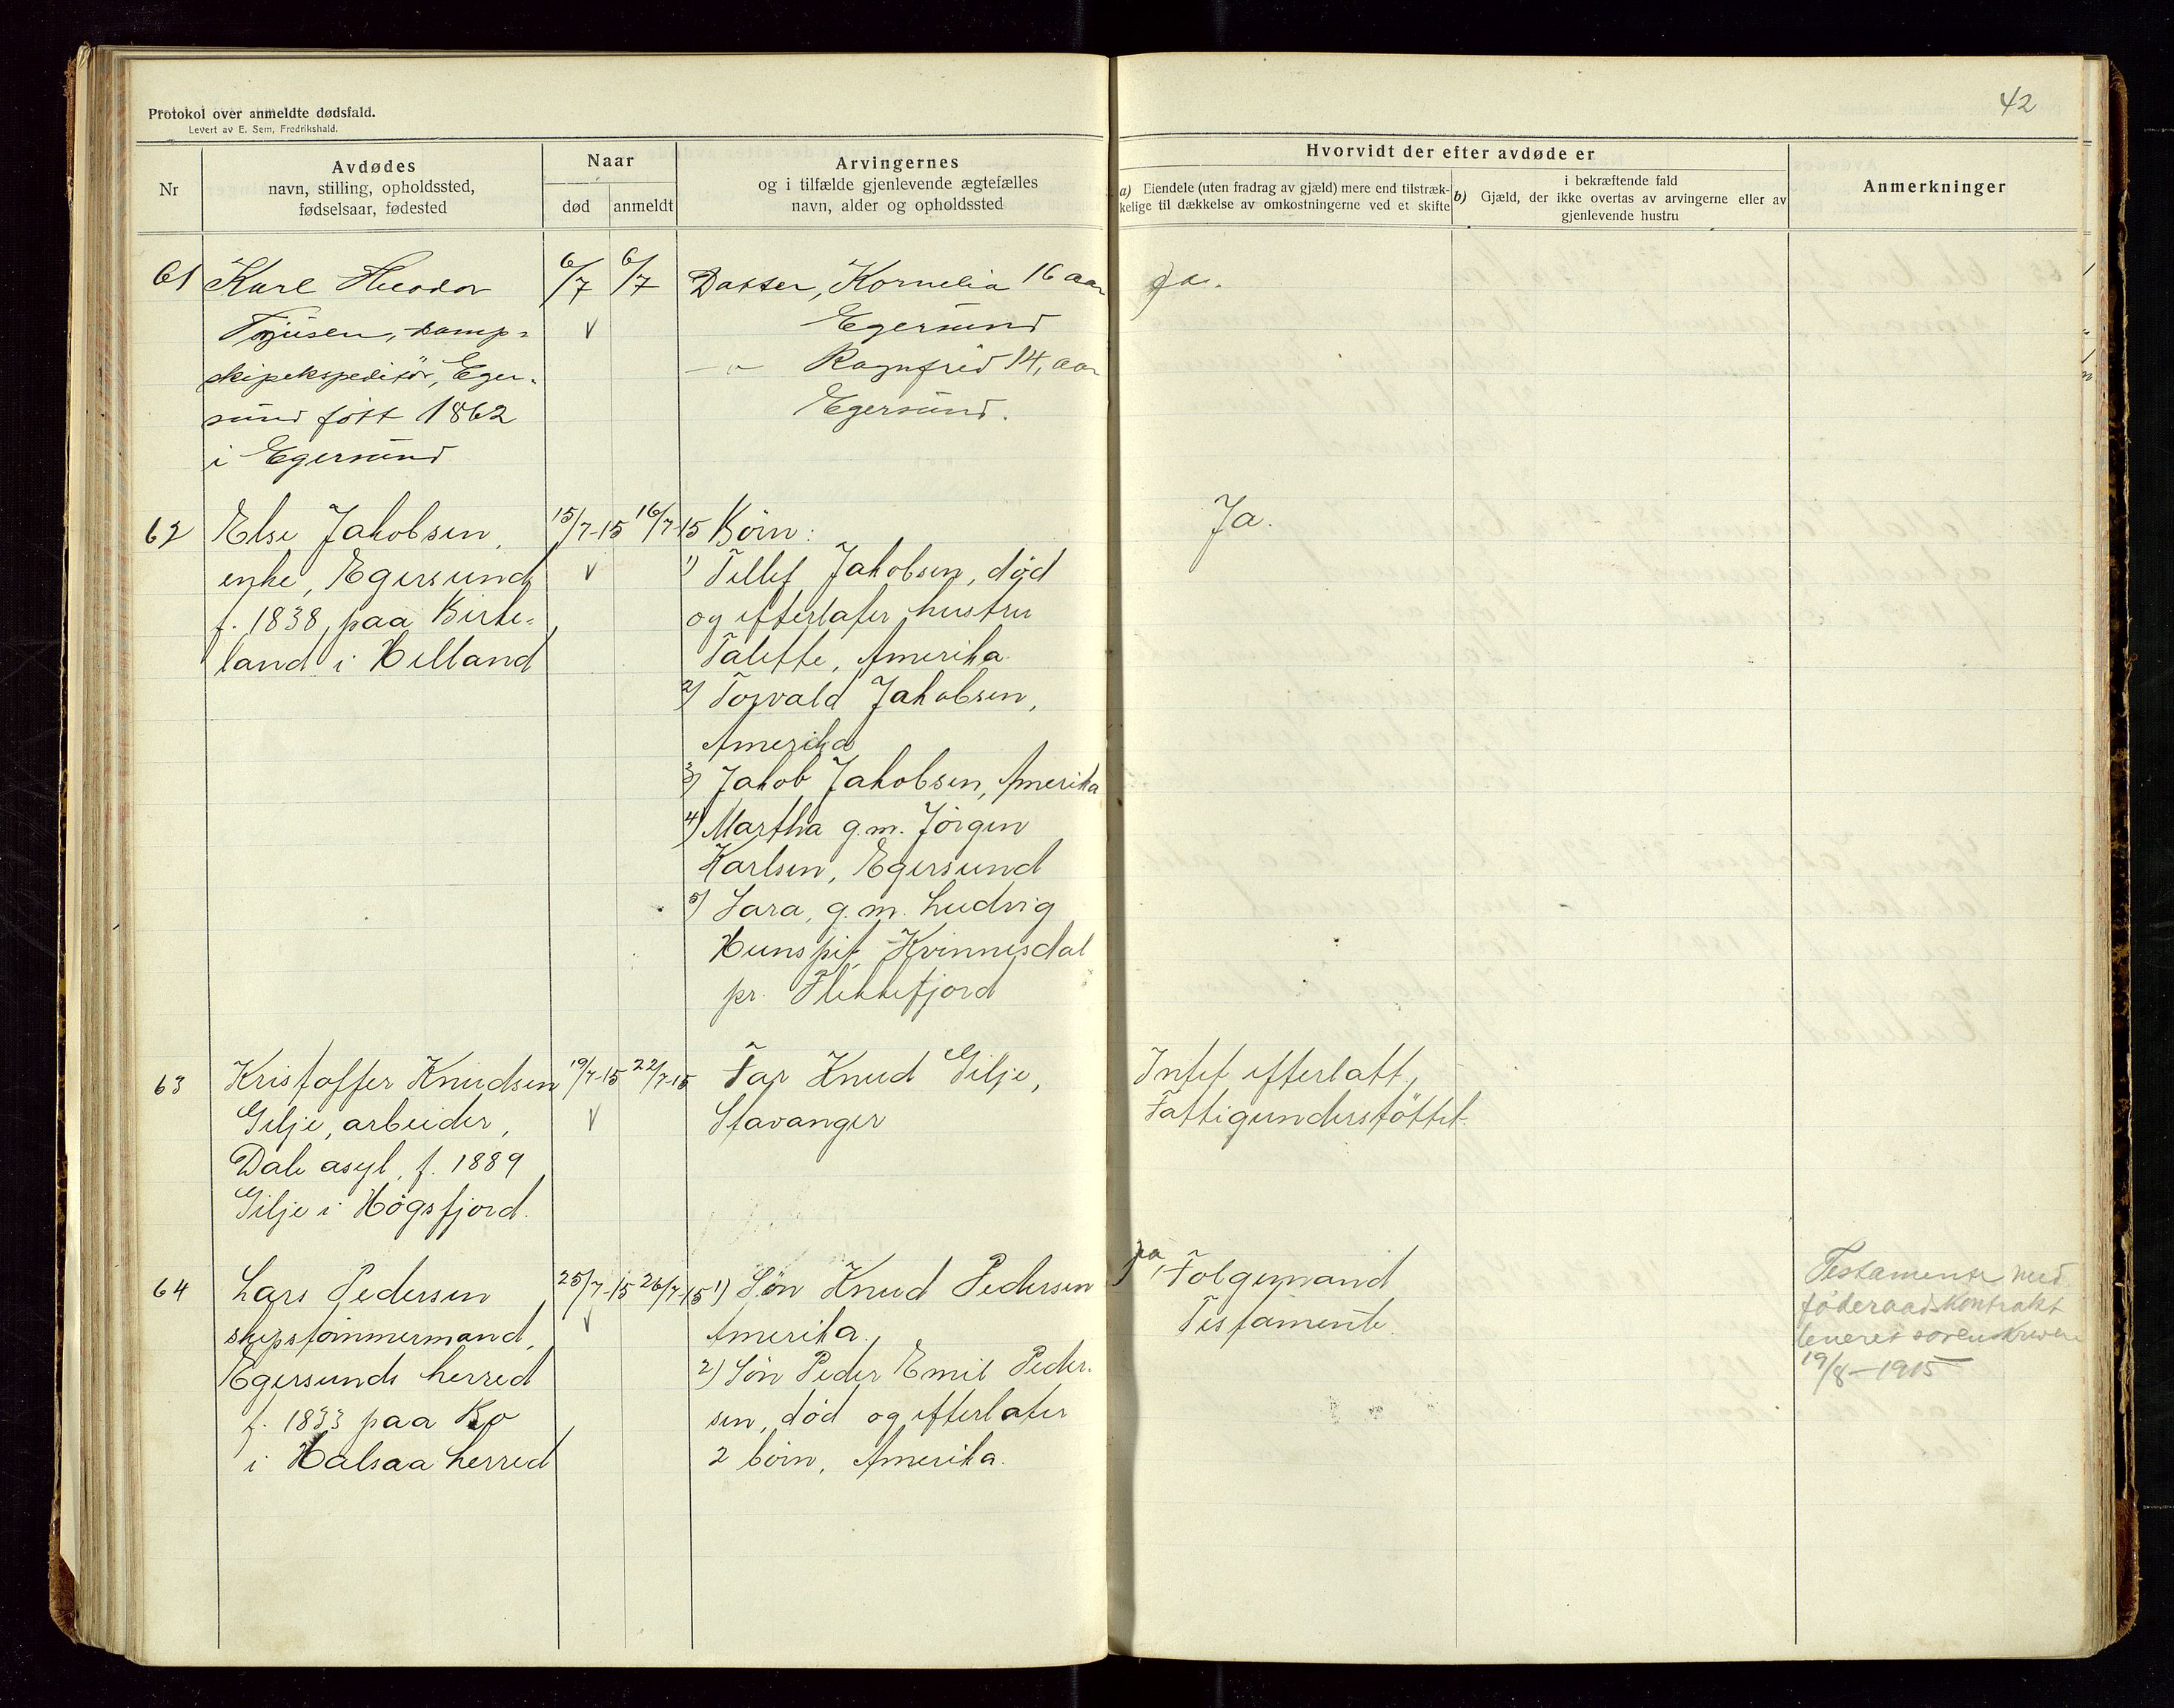 Protokol over anmeldte dødsfald.
Levert av E. Sem, Fredrikshald.
42
Nr
Avdødes
navn, stilling, opholdssted,
fødselsaar, fødested
Naar
død
anmeldt
Arvingernes
og i tilfælde gjenlevende ægtefælles
navn, alder og opholdssted
Hvorvidt der efter avdøde er
a) Eiendele (uten fradrag av gjæld) mere end tilstræk-
kelige til dækkelse av omkostningerne ved et skifte
i bekræftende fald
b) Gjæld, der ikke overtas av arvingerne eller av
gjenlevende hustru
Anmerkninger
61
Karl Theodor
Tojusen, damp-
skipekspeditör, Eger-
sund født 1862
i Egersund
6/7
6/7
V
Datter, Kornelia 16 aar
Egersund
— " — Ragnfrid 14, aar
Egersund.
Ja.
62
Else Jakobsen,
enke, Egersund,
f. 1838, paa Birke-
land i Helland
15/7-15
16/7-15
V
Börn:
1) Tellef Jakobsen, död
og efterlater hustru
Talette, Amerika
2) Torvald Jakobsen,
Amerika
3) Jakob Jakobsen, Amerika
4) Martha g.m. Jörgen
Karlsen, Egersund
5) Sara, g.m. Ludvig
Hunspit, Kvinnesdal
pr. Flekkefjord
Ja.
63
Kristoffer Knudsen
Gilje, arbeider,
Dale asyl, f. 1889
Gilje i Högsfjord.
19/7-15
22/7-15
V
Far Knud Gilje,
Stavanger
Intet efterlatt,
Fattigunderstöttet.
64
Lars Pedersen
skipstömmermand,
Egersunds herred
f. 1833 paa Bo
i Halsaa herred
25/7-15
26/7-15
V
1) Sön Knud Pedersen
Amerika.
2) Sön Peder Emil Peder-
sen, död og efterlater
2 börn, Amerika.
Ja, Folgemand
Testamente.
Testamente med
föderaadskontrakt
leveret sorenskriver
19/8-1915